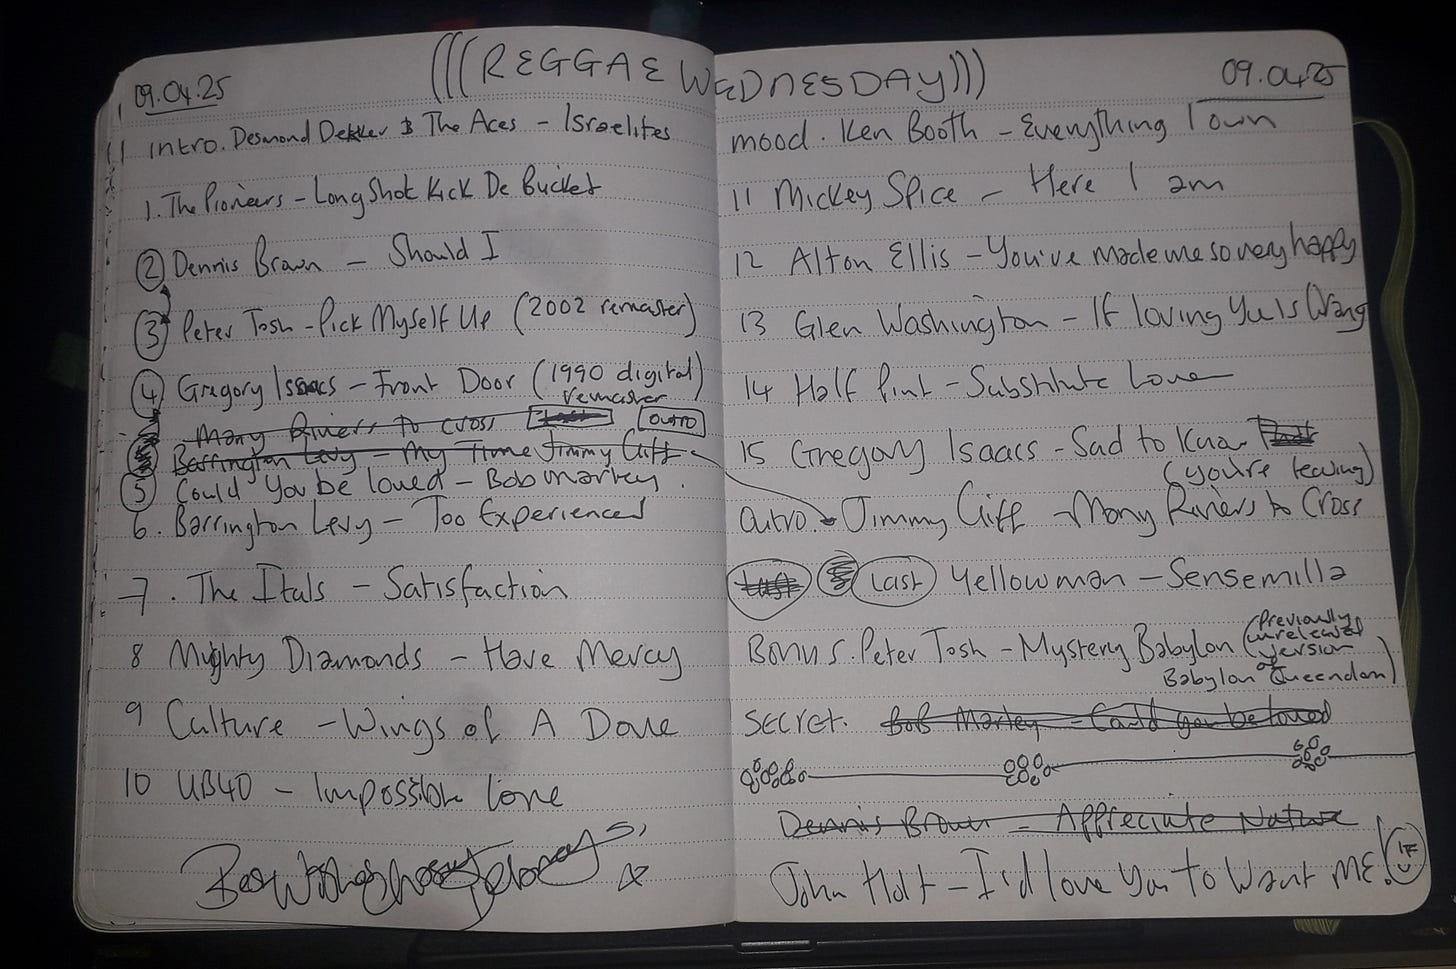 (((REGGAE WEDNESDAY)))
09.04.25
Intro. Desmond Dekker & The Aces - Israelites
1. The Pioneers - Long Shot Kick De Bucket
2 Dennis Brown - Should I
3 Peter Tosh - Pick Myself Up (2002 remaster)
4 Gregory Isaacs - Front Door (1990 digital)
remaster
Many Rivers to cross outro
Barrington Levy - My Time Jimmy Cliff
5 Could You be loved - Bob marley.
6. Barrington Levy - Too Experienced
7. The Itals - Satisfaction
8 Mighty Diamonds - Have Mercy
9 Culture - Wings of A Dove
10 UB40 - Impossible Love
09.04.25
mood. Ken Booth - Everything I own
11 Mickey Spice - Here I am
12 Alton Ellis - You've made me so very happy
13 Glen Washington - If loving You Is Wrong
14 Half Pint - Substitute Love
15 Gregory Isaacs - Sad to Know
(you're leaving)
Outro Jimmy Cliff - Many Rivers to Cross
Last Last Yellowman - Sensemilla
Bonus. Peter Tosh - Mystery Babylon (Previously
unreleased
version
of
Babylon Queendom)
Secret. Bob Marley - Could you be loved
Dennis Brown - Appreciate Nature
John Holt - I'd love You to Want ME!